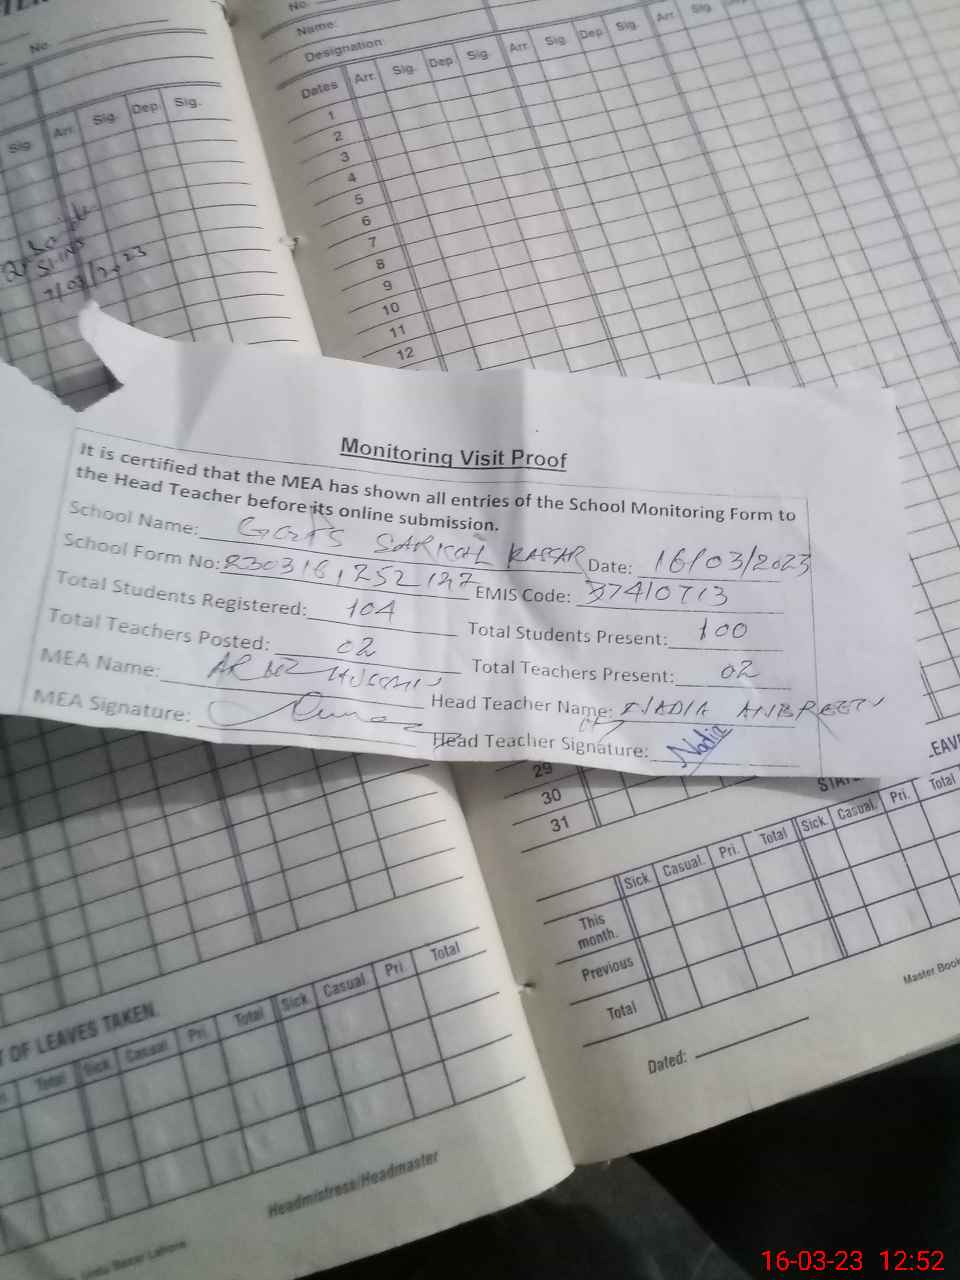 No.
Sig. Arr. Sig. Dep. Sig.
No.
Name:
Designation:
Dates Arr. Sig. Dep. Sig. Arr. Sig. Dep. Sig. Arr. Sig.
1
2
3
4
5
6
7
8
9
10
11
12
Monitoring Visit Proof
It is certified that the MEA has shown all entries of the School Monitoring Form to
the Head Teacher before its online submission.
School Name: SARKOL Date: 16/03/2023
School Form No: EMIS Code: 37410713
Total Students Registered: 104 Total Students Present: 100
Total Teachers Posted: 02 Total Teachers Present: 02
MEA Name: Head Teacher Name: NADIA
MEA Signature: Head Teacher Signature: Nadia
29
30
31
Sick. Casual. Pri. Total Sick. Casual. Pri. Total
This
month.
Previous
Total
Master Book
Dated:
T OF LEAVES TAKEN.
Total Sick. Casual. Pri. Total Sick. Casual. Pri. Total
Headmistress/Headmaster
16-03-23 12:52